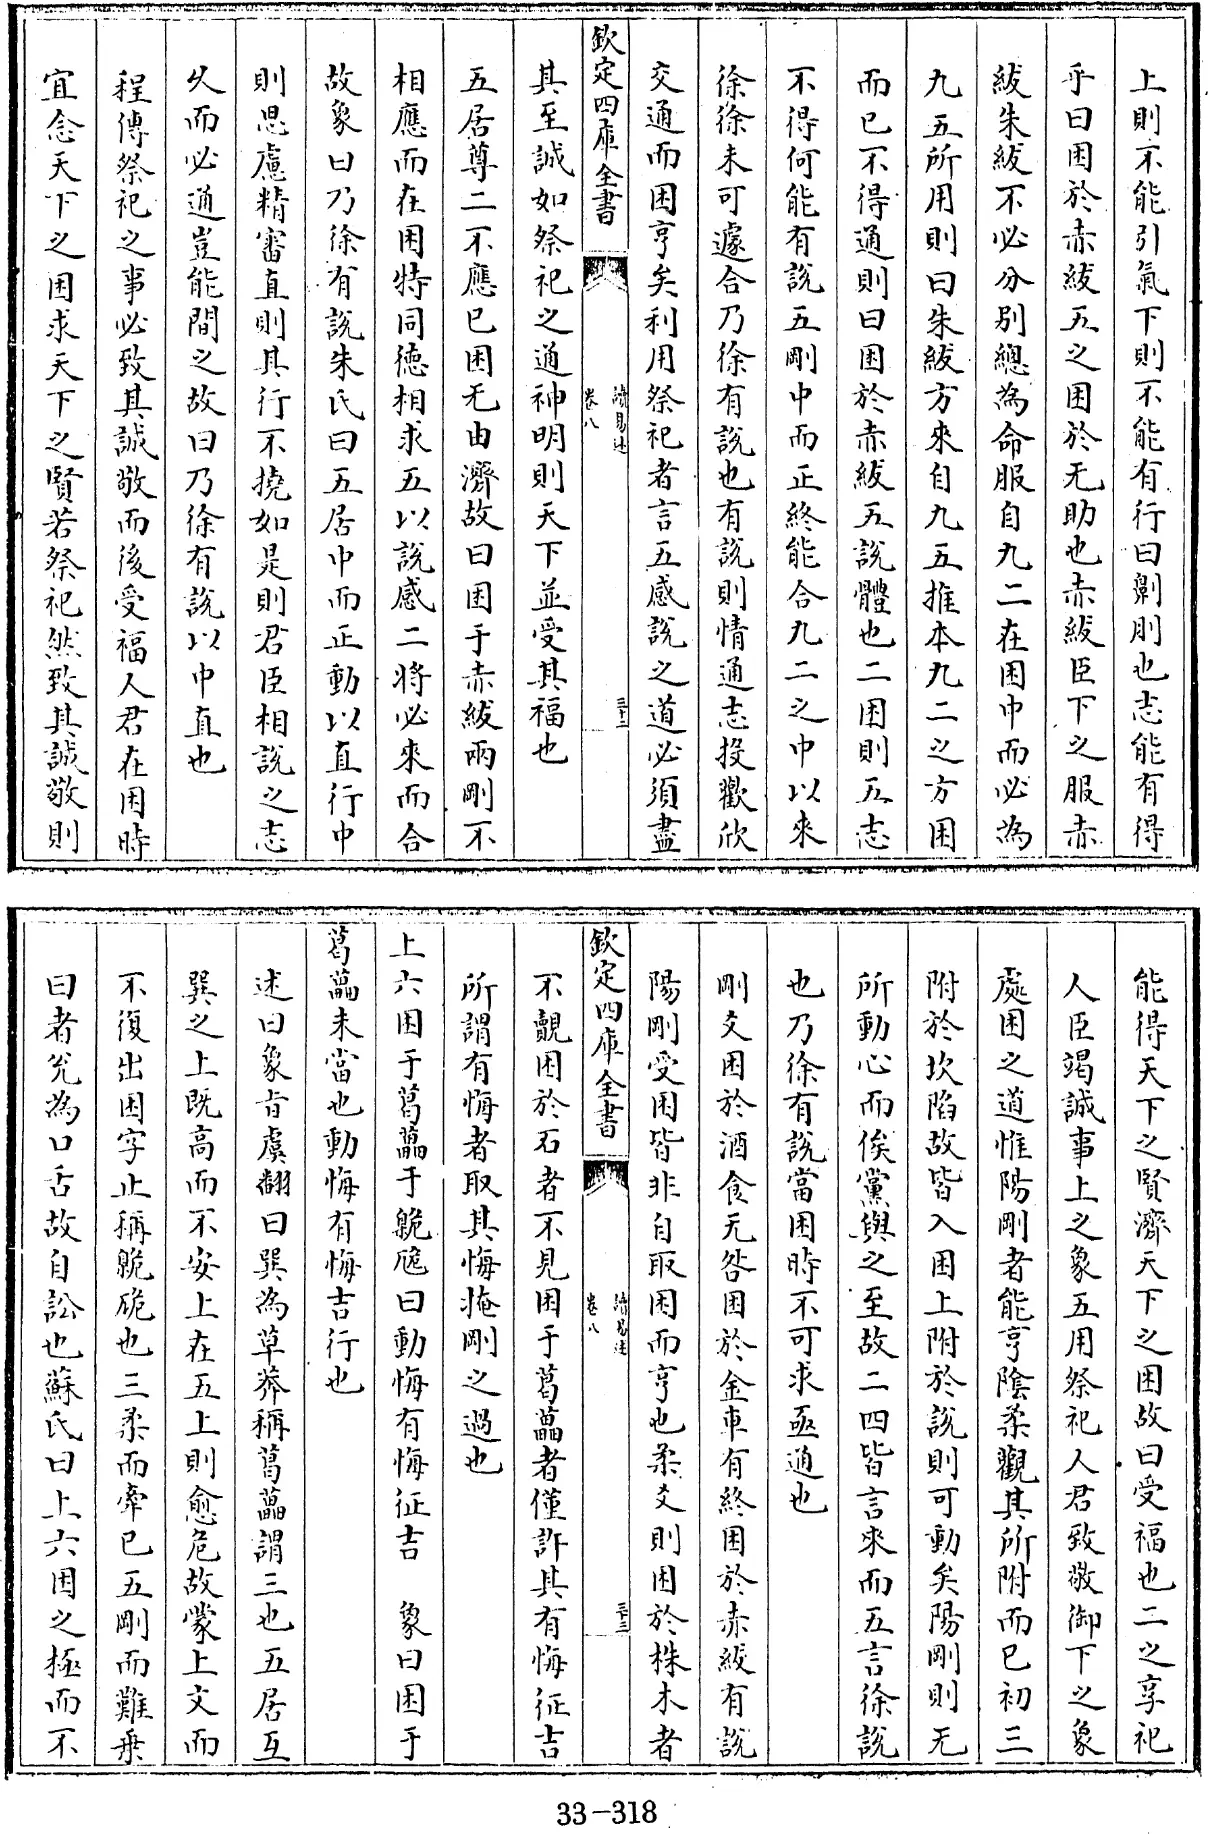 上則不能引氣下則不能有行曰劓刖也志能有得
乎曰困於赤紱五之困於无助也赤紱臣下之服赤
紱朱紱不必分别總為命服自九二在困中而必為
九五所用則曰朱紱方來自九五推本九二之方困
而已不得通則曰困於赤紱五說體也二困則五志
不得何能有說五剛中而正終能合九二之中以來
徐徐未可遽合乃徐有說也有說則情通志投歡欣
交通而困亨矣利用祭祀者言五感說之道必須盡
欽定四庫全書
讀易述
卷八
三十二
其至誠如祭祀之通神明則天下並受其福也
五居尊二不應已困无由濟故曰困于赤紱兩剛不
相應而在困特同德相求五以說感二將必來而合
故象曰乃徐有說朱氏曰五居中而正動以直行中
則思慮精審直則其行不撓如是則君臣相說之志
久而必通豈能間之故曰乃徐有說以中直也
程傳祭祀之事必致其誠敬而後受福人君在困時
宜念天下之困求天下之賢若祭祀然致其誠敬則
能得天下之賢濟天下之困故曰受福也二之享祀
人臣竭誠事上之象五用祭祀人君致敬御下之象
處困之道惟陽剛者能亨陰柔觀其所附而已初三
附於坎陷故皆入困上附於說則可動矣陽剛則无
所動心而俟黨與之至故二四皆言來而五言徐說
也乃徐有說當困時不可求亟通也
剛爻困於酒食无咎困於金車有終困於赤紱有說
陽剛受困皆非自取困而亨也柔爻則困於株木者
欽定四庫全書
讀易述
卷八
三十三
不覿困於石者不見困于葛藟者僅許其有悔征吉
所謂有悔者取其悔掩剛之過也
上六困于葛藟于臲卼曰動悔有悔征吉 象曰困于
葛藟未當也動悔有悔吉行也
述曰象㫖虞翻曰巽為草莽稱葛藟謂三也五居互
巽之上既高而不安上在五上則愈危故蒙上文而
不復出困字止稱臲卼也三柔而牽已五剛而難乗
曰者兊為口舌故自訟也蘇氏曰上六困之極而不
33-318